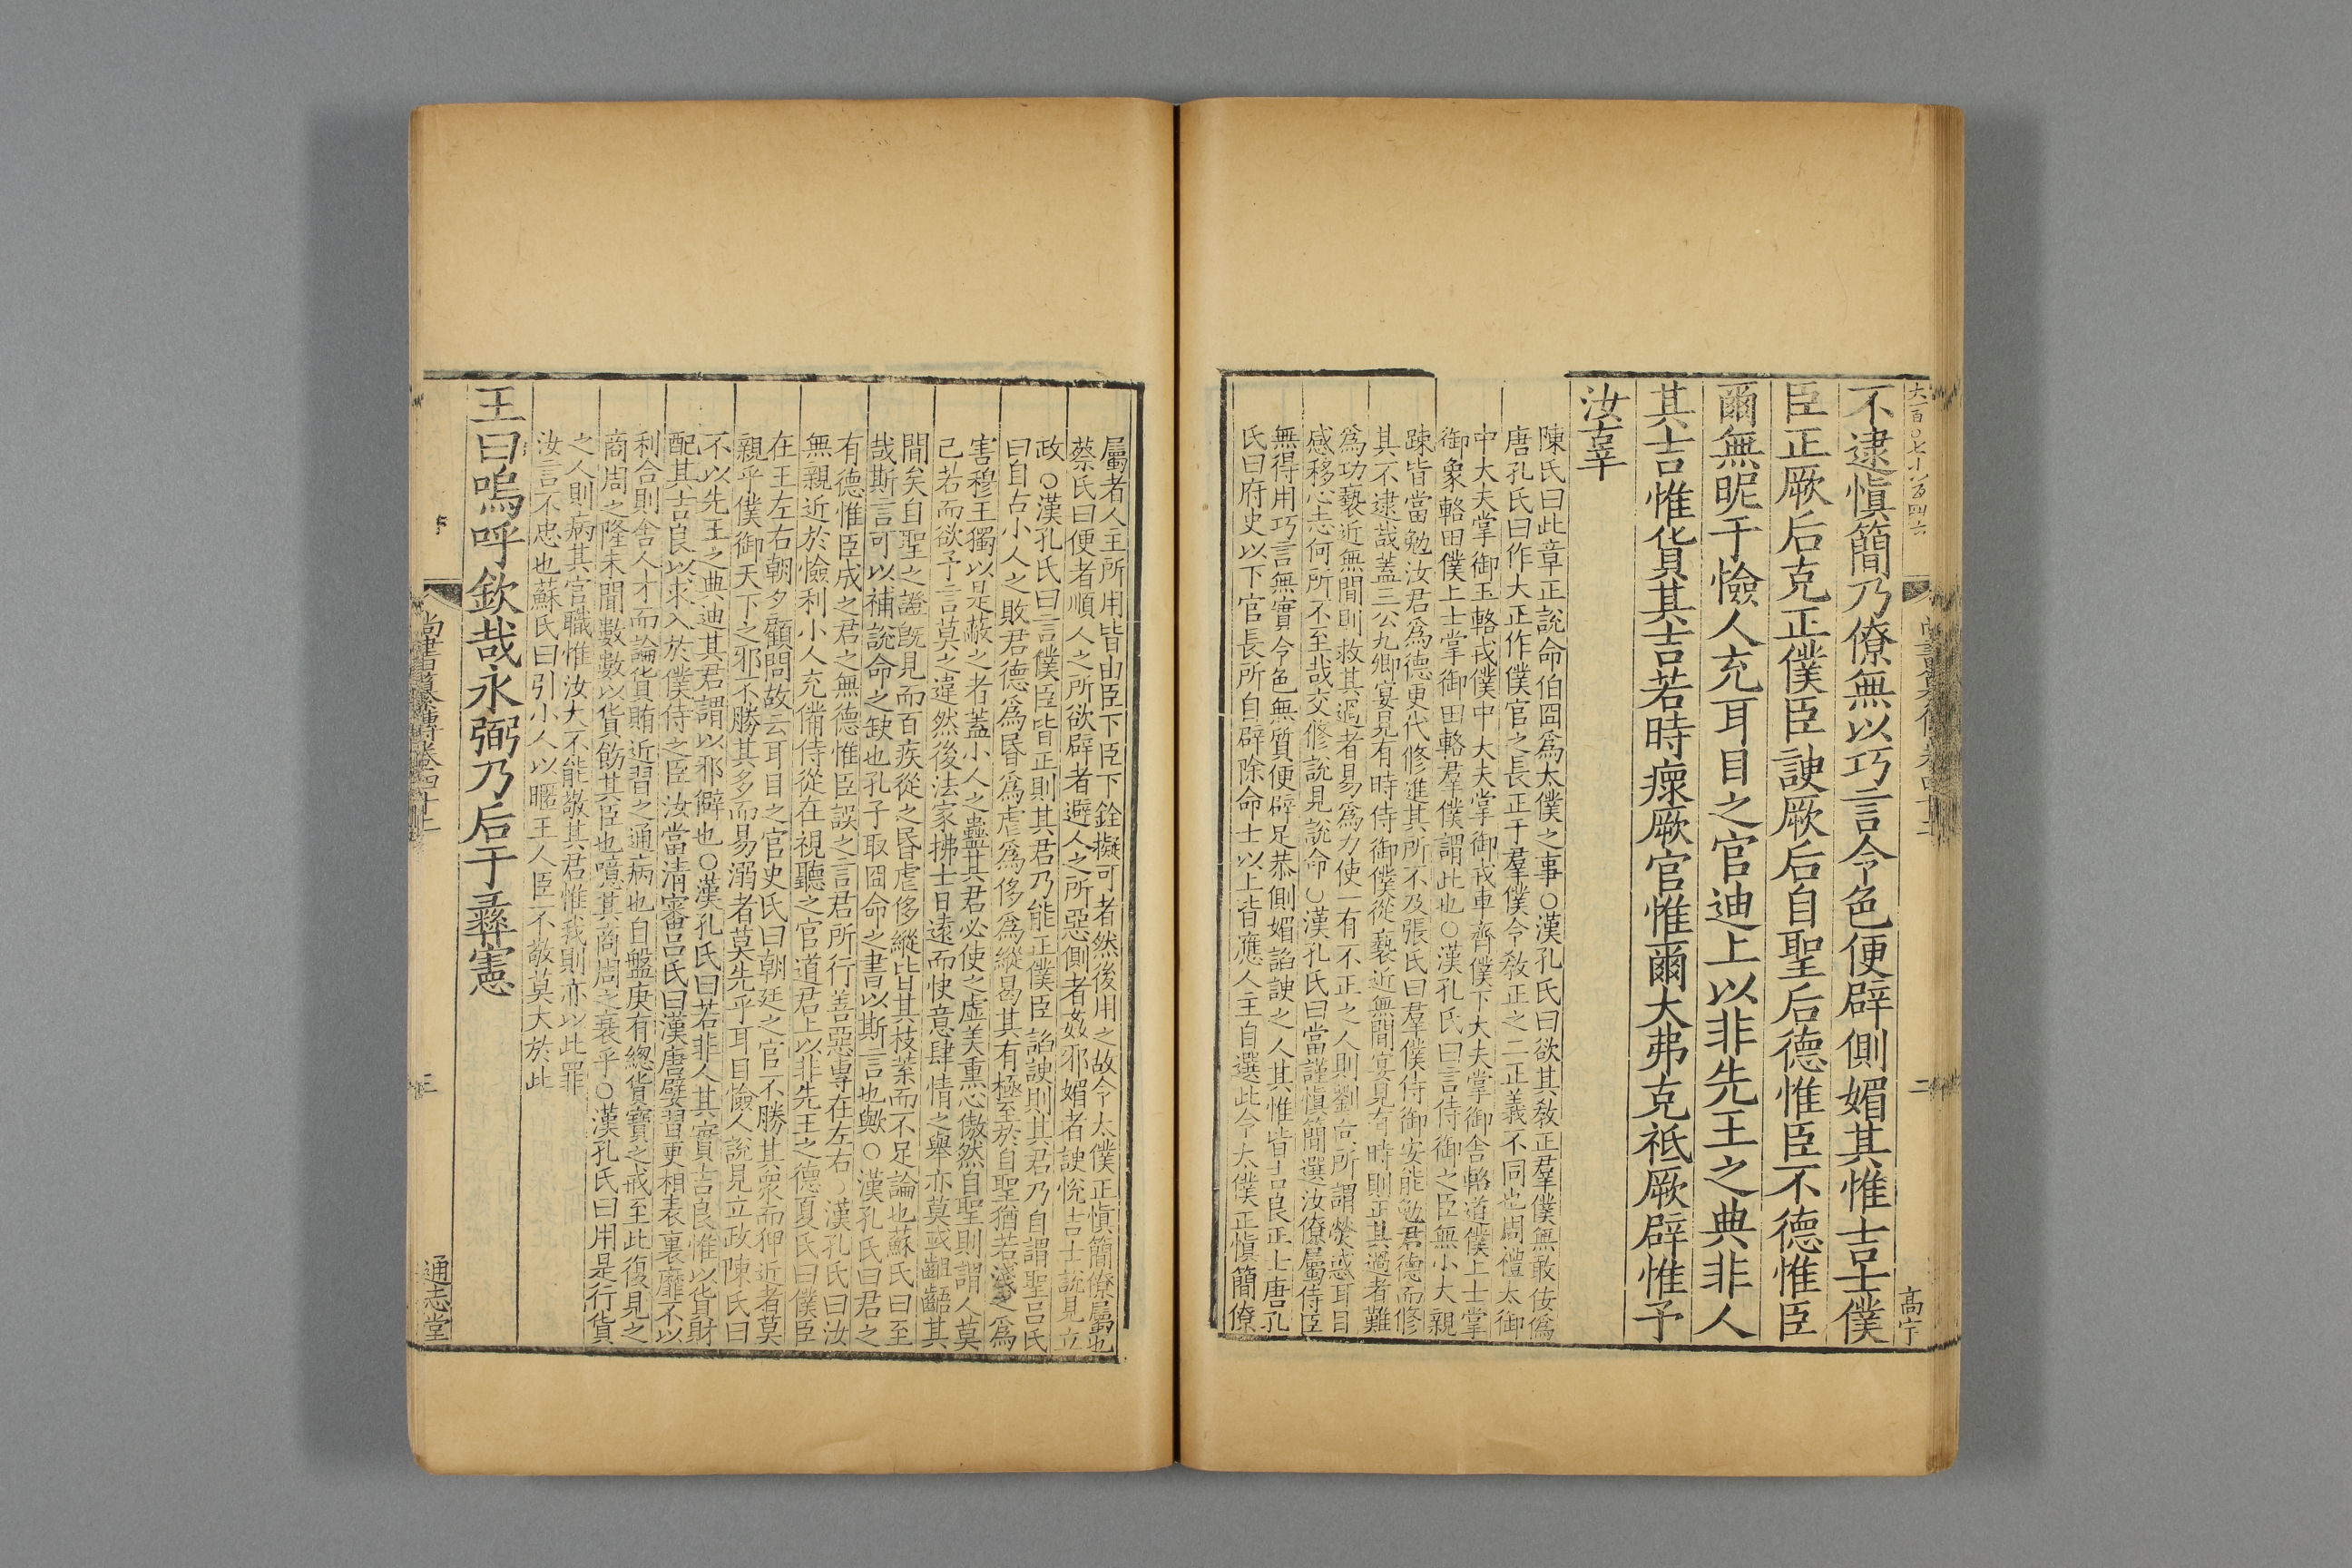 不逮愼簡乃僚無以巧言令色便辟側媚其惟吉士僕
臣正厥后克正僕臣諛厥后自聖后德惟臣不德惟臣
爾無昵于憸人充耳目之官迪上以非先王之典非人
其吉惟貨其吉若時瘝厥官惟爾大弗克祗厥辟惟予
汝辜
陳氏曰此章正說命伯冏爲太僕之事○漢孔氏曰欲其敎正羣僕無敢佞爲
唐孔氏曰作大正作僕官之長正于羣僕令敎正之二正義不同也周禮太御
中大夫掌御玉輅戎僕中大夫掌御戎車齊僕下大夫掌御舍輅道僕上士掌
御象輅田僕上士掌御田輅羣僕謂此也○漢孔氏曰言侍御之臣無小大親
踈皆當勉汝君爲德更代修進其所不及張氏曰羣僕侍御安能勉君德而修
其不逮哉蓋三公九卿宴見有時侍御僕從褻近無間宴見有時則正其過者難
爲功褻近無間則救其過者易爲力使一有不正之人則劉向所謂熒惑耳目
感移心志何所不至哉交修說見說命○漢孔氏曰當謹愼簡選汝僚屬侍臣
無得用巧言無實令色無質便辟足恭側媚諂諛之人其惟皆吉良正士唐孔
氏曰府史以下官長所自辟除命士以上皆應人主自選此令太僕正愼簡僚
高宇
二
屬者人主所用皆由臣下臣下銓擬可者然後用之故令太僕正愼簡僚屬也
蔡氏曰便者順人之所欲辟者避人之所惡側者姦邪媚者諛悅吉士說見立
政○漢孔氏曰言僕臣皆正則其君乃能正僕臣諂諛則其君乃自謂聖呂氏
曰自古小人之敗君德爲昏爲虐爲侈爲縱曷其有極至於自聖猶若淺之爲
害穆王獨以是蔽之者蓋小人之蠱其君必使之虛美熏心傲然自聖則謂人莫
己若而欲予言莫之違然後法家拂士日遠而快意肆情之舉亦莫或齟齬其
間矣自聖之證旣見而百疾從之昏虐侈縱皆其枝葉而不足論也蘇氏曰至
哉斯言可以補說命之缺也孔子取冏命之書以斯言也歟○漢孔氏曰君之
有德惟臣成之君之無德惟臣誤之言君所行善惡專在左右○漢孔氏曰汝
無親近於憸利小人充備侍從在視聽之官道君上以非先王之德夏氏曰僕臣
在王左右朝夕顧問故云耳目之官史氏曰朝廷之官不勝其衆而狎近者莫
親乎僕御天下之邪不勝其多而易溺者莫先乎耳目憸人說見立政陳氏曰
不以先王之典迪其君謂以邪僻也○漢孔氏曰若非人其實吉良惟以貨財
配其吉良以求入於僕侍之臣汝當清審呂氏曰漢唐嬖習更相表裏靡不以
利合則舍人才而論貨賄近習之通病也自盤庚有總貨寶之戒至此復見之
商周之隆未聞數數以貨飭其臣也噫其商周之衰乎○漢孔氏曰用是行貨
之人則病其官職惟汝大不能敬其君惟我則亦以此罪
汝言不忠也蘇氏曰引小人以暱王人臣不敬莫大於此
王曰嗚呼欽哉永弼乃后于彝憲
三
通志堂